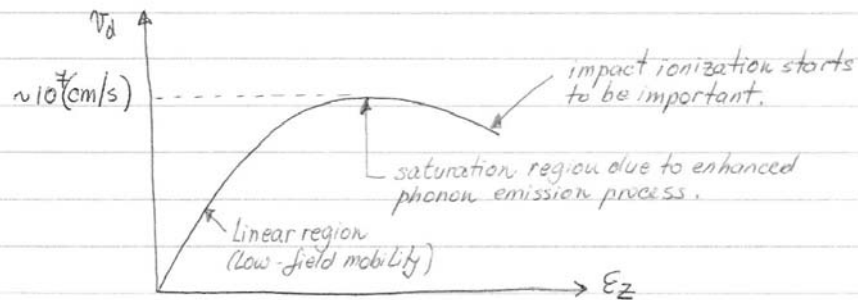 v_d
~10^7 (cm/s)
impact ionization starts
to be important.
saturation region due to enhanced
phonon emission process.
Linear region
(Low-field mobility)
ε_z